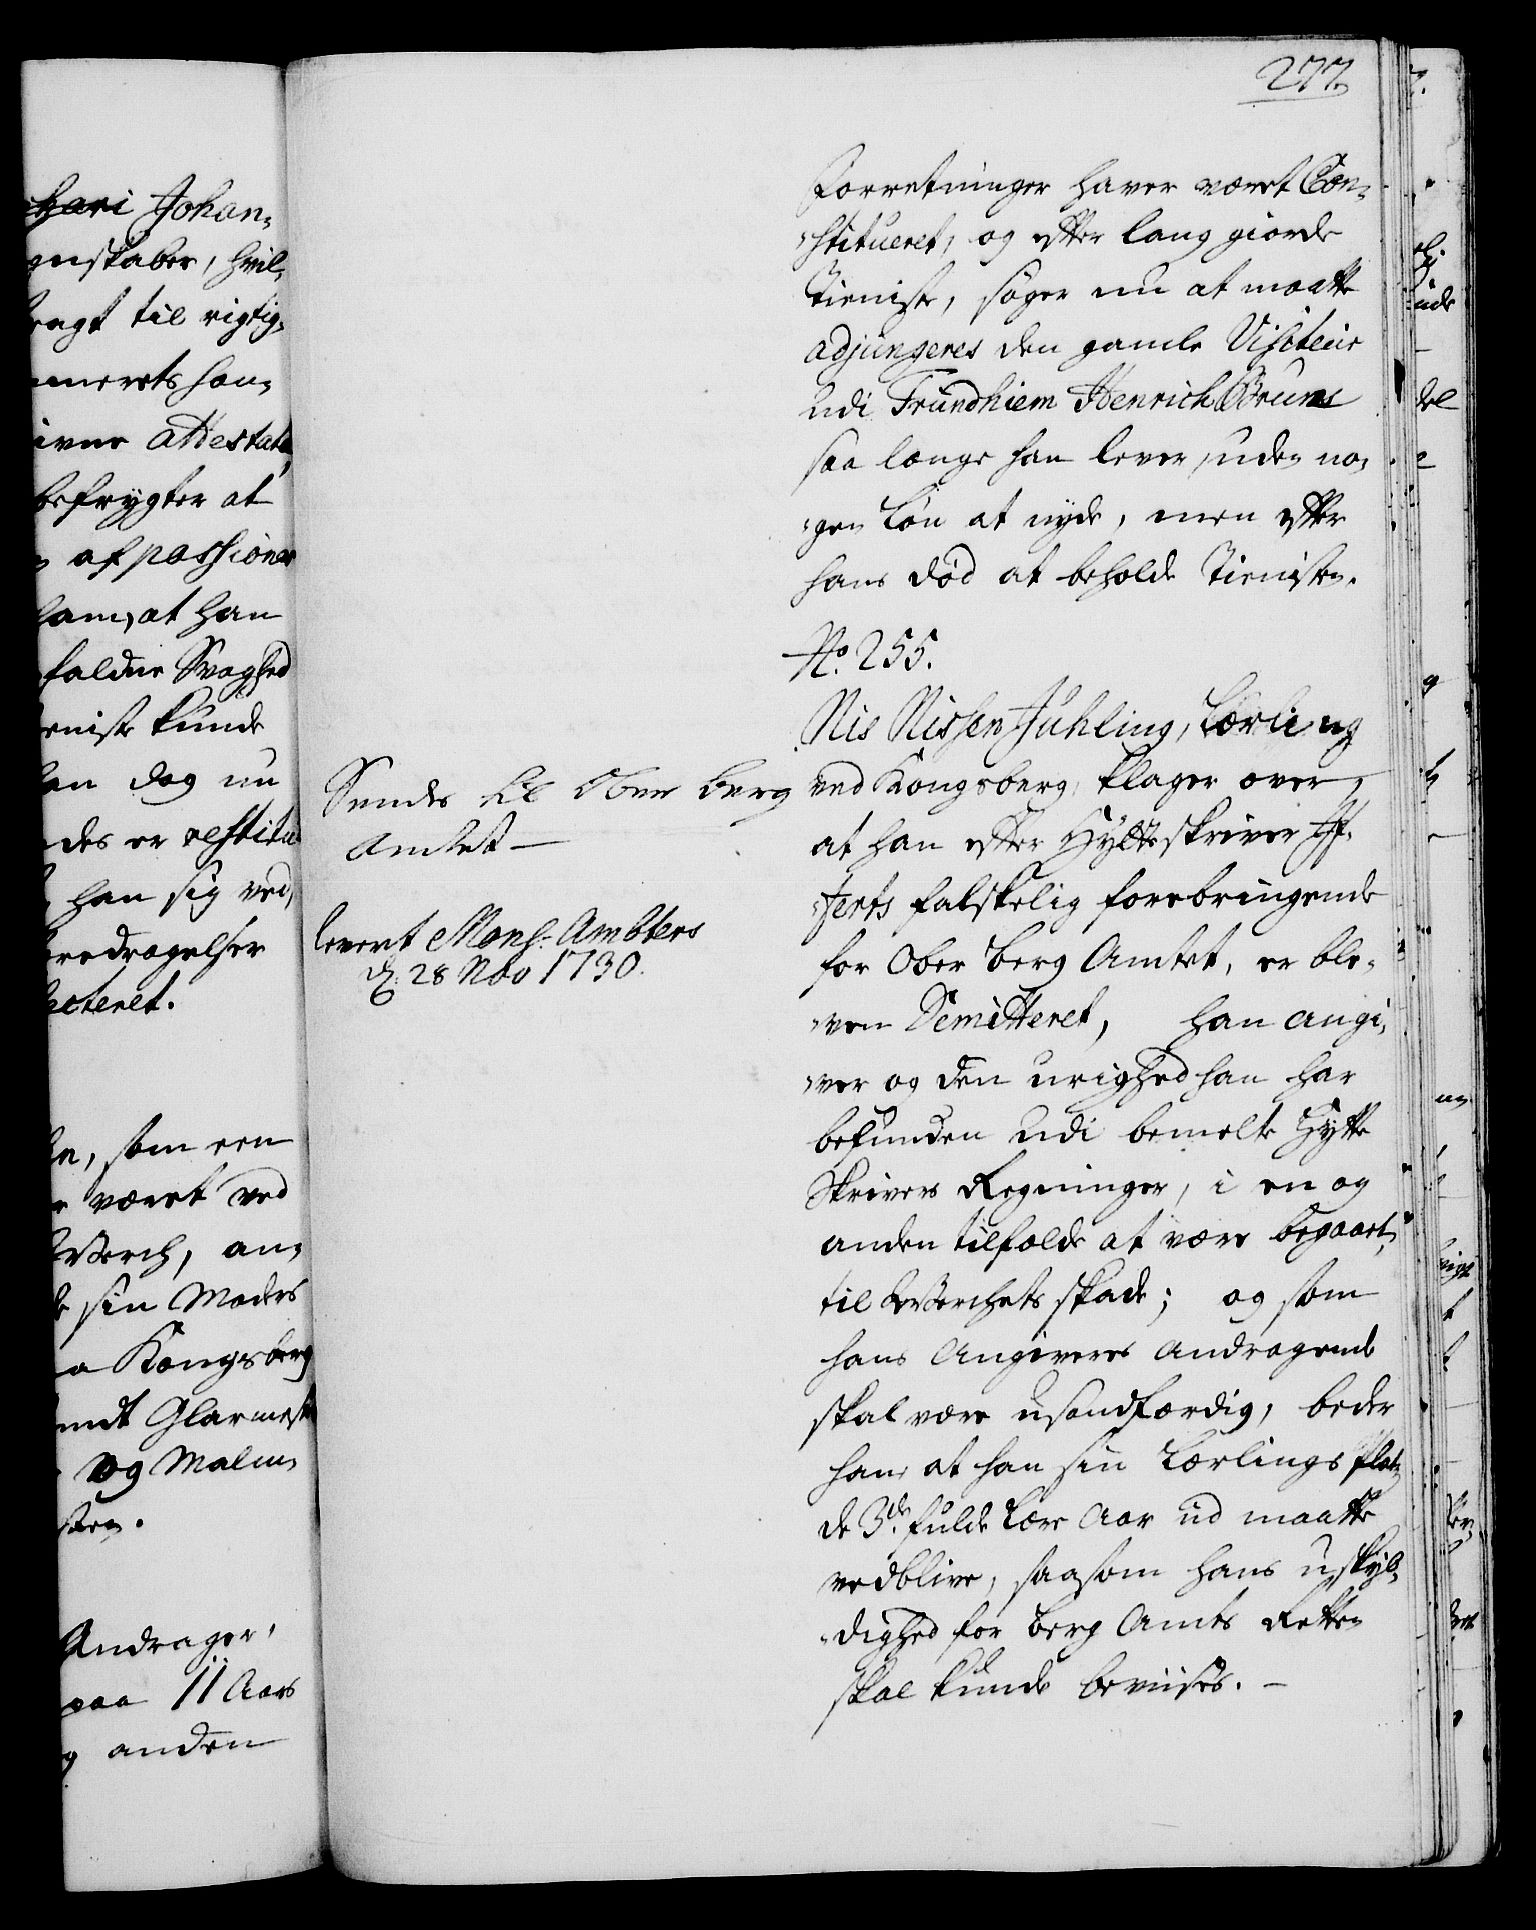 277.
Forretninger haver været Con-
-stitueret, og efter lang giorde
Tieniste, søger nu at maatte
adjungeres den gamle Visiteur
udi Trundhiem Henrich Bruns
saa længe han lever, uden no-
-gen Løn at nyde, men efter
hans død at beholde Tienisten.
No. 255.
Nis Nissen Juhling, Lærling
ved Kongsberg, klager over,
at han efter Hytteskriver
falskelig forebringende
for Ober Berg Amtet, er ble-
-ven Demitteret, han angi-
-ver og den urighed han har
befunden udi bemelte Hytte
Skrivers Regninger, i en og
anden tilfælde at være begaaet,
til Werchets skade; og som
hans Angiveres andragende
skal være usandfærdig, beder
han at han sin Lærlings Plads
de 3de fulde Lære Aar ud maatte
vedblive, saasom hans uskyl-
-dighed for Berg Amts Retten
skal kunde beviises. -
Sendes til Ober Berg
Amtet -
levert Mons. Ambters
d. 28 Nov 1730.
hari Johan-
genskaber, hvil-
bragt til rigtig-
merets han-
givne Attestata,
befrygter at
af passioner
ham, at han
faldne Svaghed
tieniste kunde
han dog nu
des er restitu-
han sig ved,
bedragelser
ecteret.
som een
været ved
Werch, an-
sin Moders
Kongsberg
Glarmest
og Malm-
sten.
Andrager,
paa 11 Aars
og anden